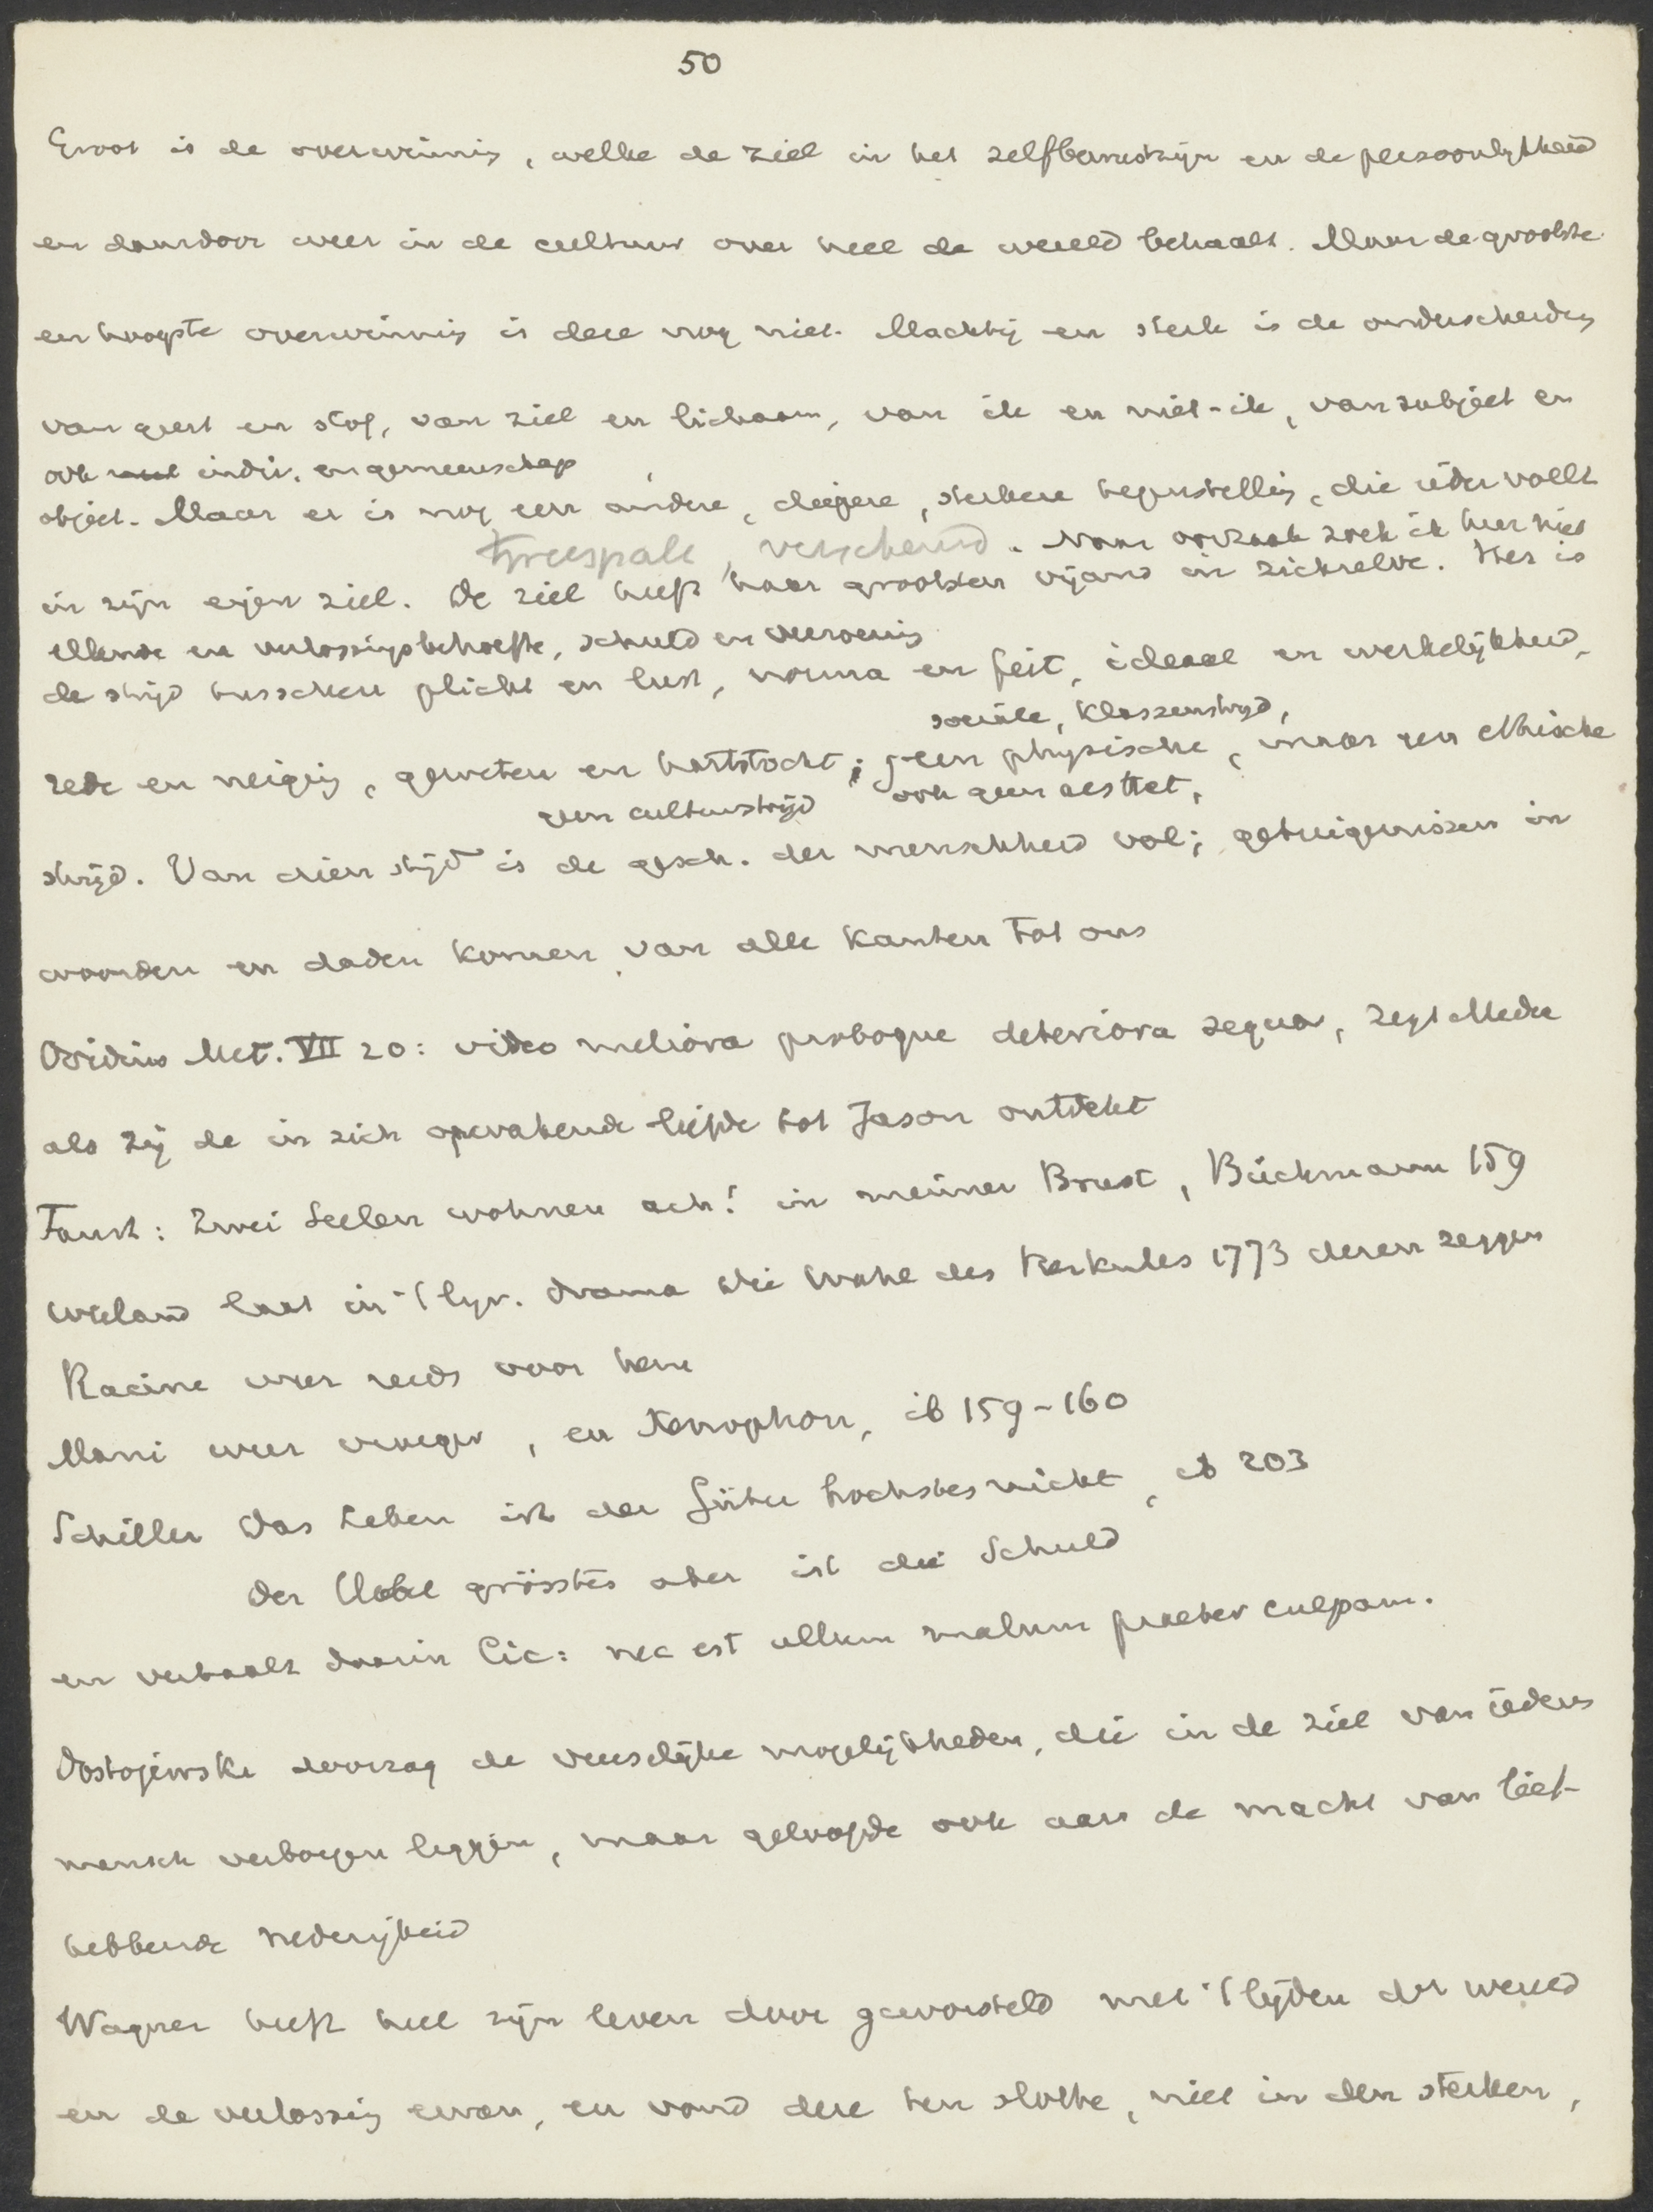 50
Groot is de overwinning, welke de ziel in het zelfbewustzijn en de persoonlijkheid
en daardoor weer in de cultuur over heel de wereld behaalt. Maar de grootste
en hoogste overwinning is deze nog niet. Machtig en sterk is de onderscheiding
van geest en stof, van ziel en lichaam, van ik en niet-ik, van subject en
ook indiv. en gemeenschap
object. Maar er is nog een andere, diepere, sterkere tegenstelling, die ieder voelt
tweespalt, verscheurd. Naar oorzaak zoek ik hier niet
in zijn eigen ziel. De ziel heeft haar grootsten vijand in zichzelve. Het is
ellende en verlossingsbehoefte, schuld en verzoening
de strijd tusschen plicht en lust, norma en feit, ideaal en werkelijkheid,
sociale, klassenstrijd,
rede en neiging, geweten en hartstocht; geen physische, maar een ethische
geen cultuurstrijd ook geen aesthet,
strijd. Van dien strijd is de gesch. der menschheid vol; getuigenissen in
woorden en daden komen van alle kanten tot ons
Ovidius Met. VII 20: video meliora proboque deteriora sequor, zegt Medea
als zij de in zich opwakende liefde tot Jason ontdekt
Faust: Zwei Seelen wohnen ach! in meiner Brust, Büchmann 159
Wieland laat in 't lyr. drama Die Wahl des Herkules 1773 dezen zeggen
Racine weer reeds voor hem
Mani weer vroeger, en Xenophon, ib 159-160
Schiller Das Leben ist der Güter höchstes nicht, ib 203
Der Uebel grösstes aber ist die Schuld
en verhaalt daarin Cic: nec est ullum malum praeter culpam.
Dostojewski doorzag de vreeselijke mogelijkheden, die in de ziel van ieders
mensch verborgen liggen, maar geloofde ook aan de macht van lief-
hebbende nederigheid
Wagner heeft heel zijn leven door geworsteld met 't lijden der wereld
en de verlossing ervan, en vond deze ten slotte, niet in den sterken,